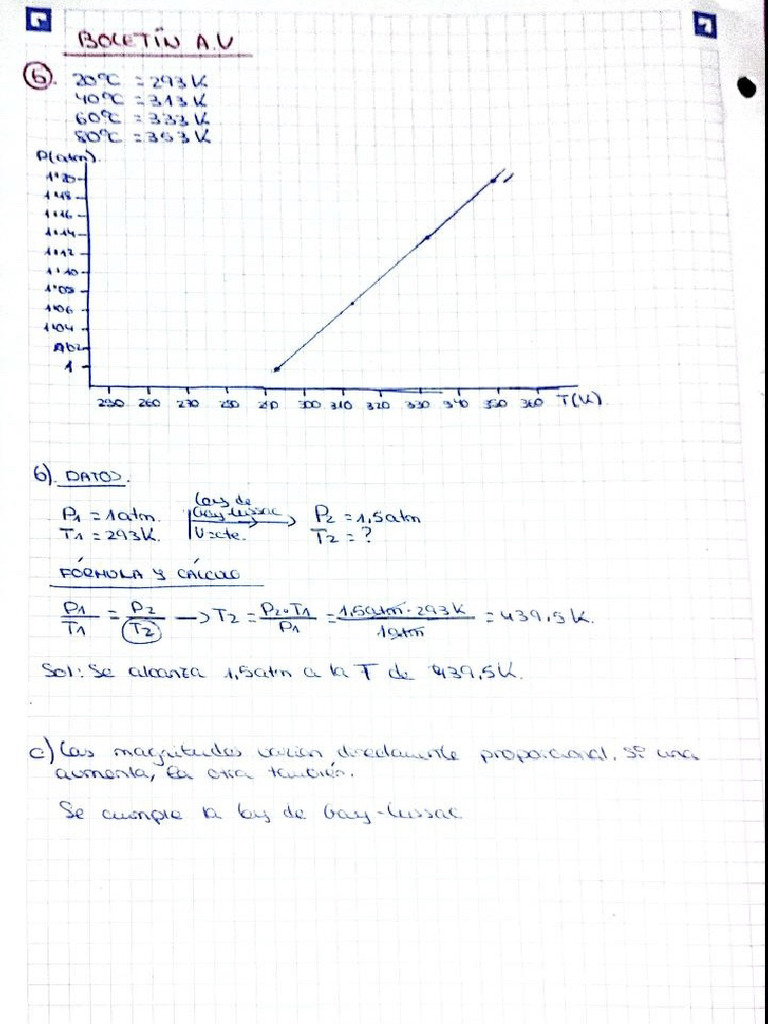 BOLETÍN A.V
6. 20°C = 293 K
40°C = 313 K
60°C = 333 K
80°C = 353 K
P(atm)
1'20
1'18
1'16
1'14
1'12
1'10
1'08
1'06
1'04
1'02
1
250 260 270 280 290 300 310 320 330 340 350 360 T(K)
b) DATOS.
P1 = 1 atm. Ley de Gay-Lussac P2 = 1,5 atm
T1 = 293 K. V=cte. T2 = ?
FÓRMULA Y CÁLCULO
P1/T1 = P2/T2 → T2 = P2·T1/P1 = 1,5 atm · 293 K/1 atm = 439,5 K.
Sol: Se alcanza 1,5 atm a la T de 439,5 K.
c) Las magnitudes varían directamente proporcional. Si una
aumenta, la otra también.
Se cumple la ley de Gay-Lussac